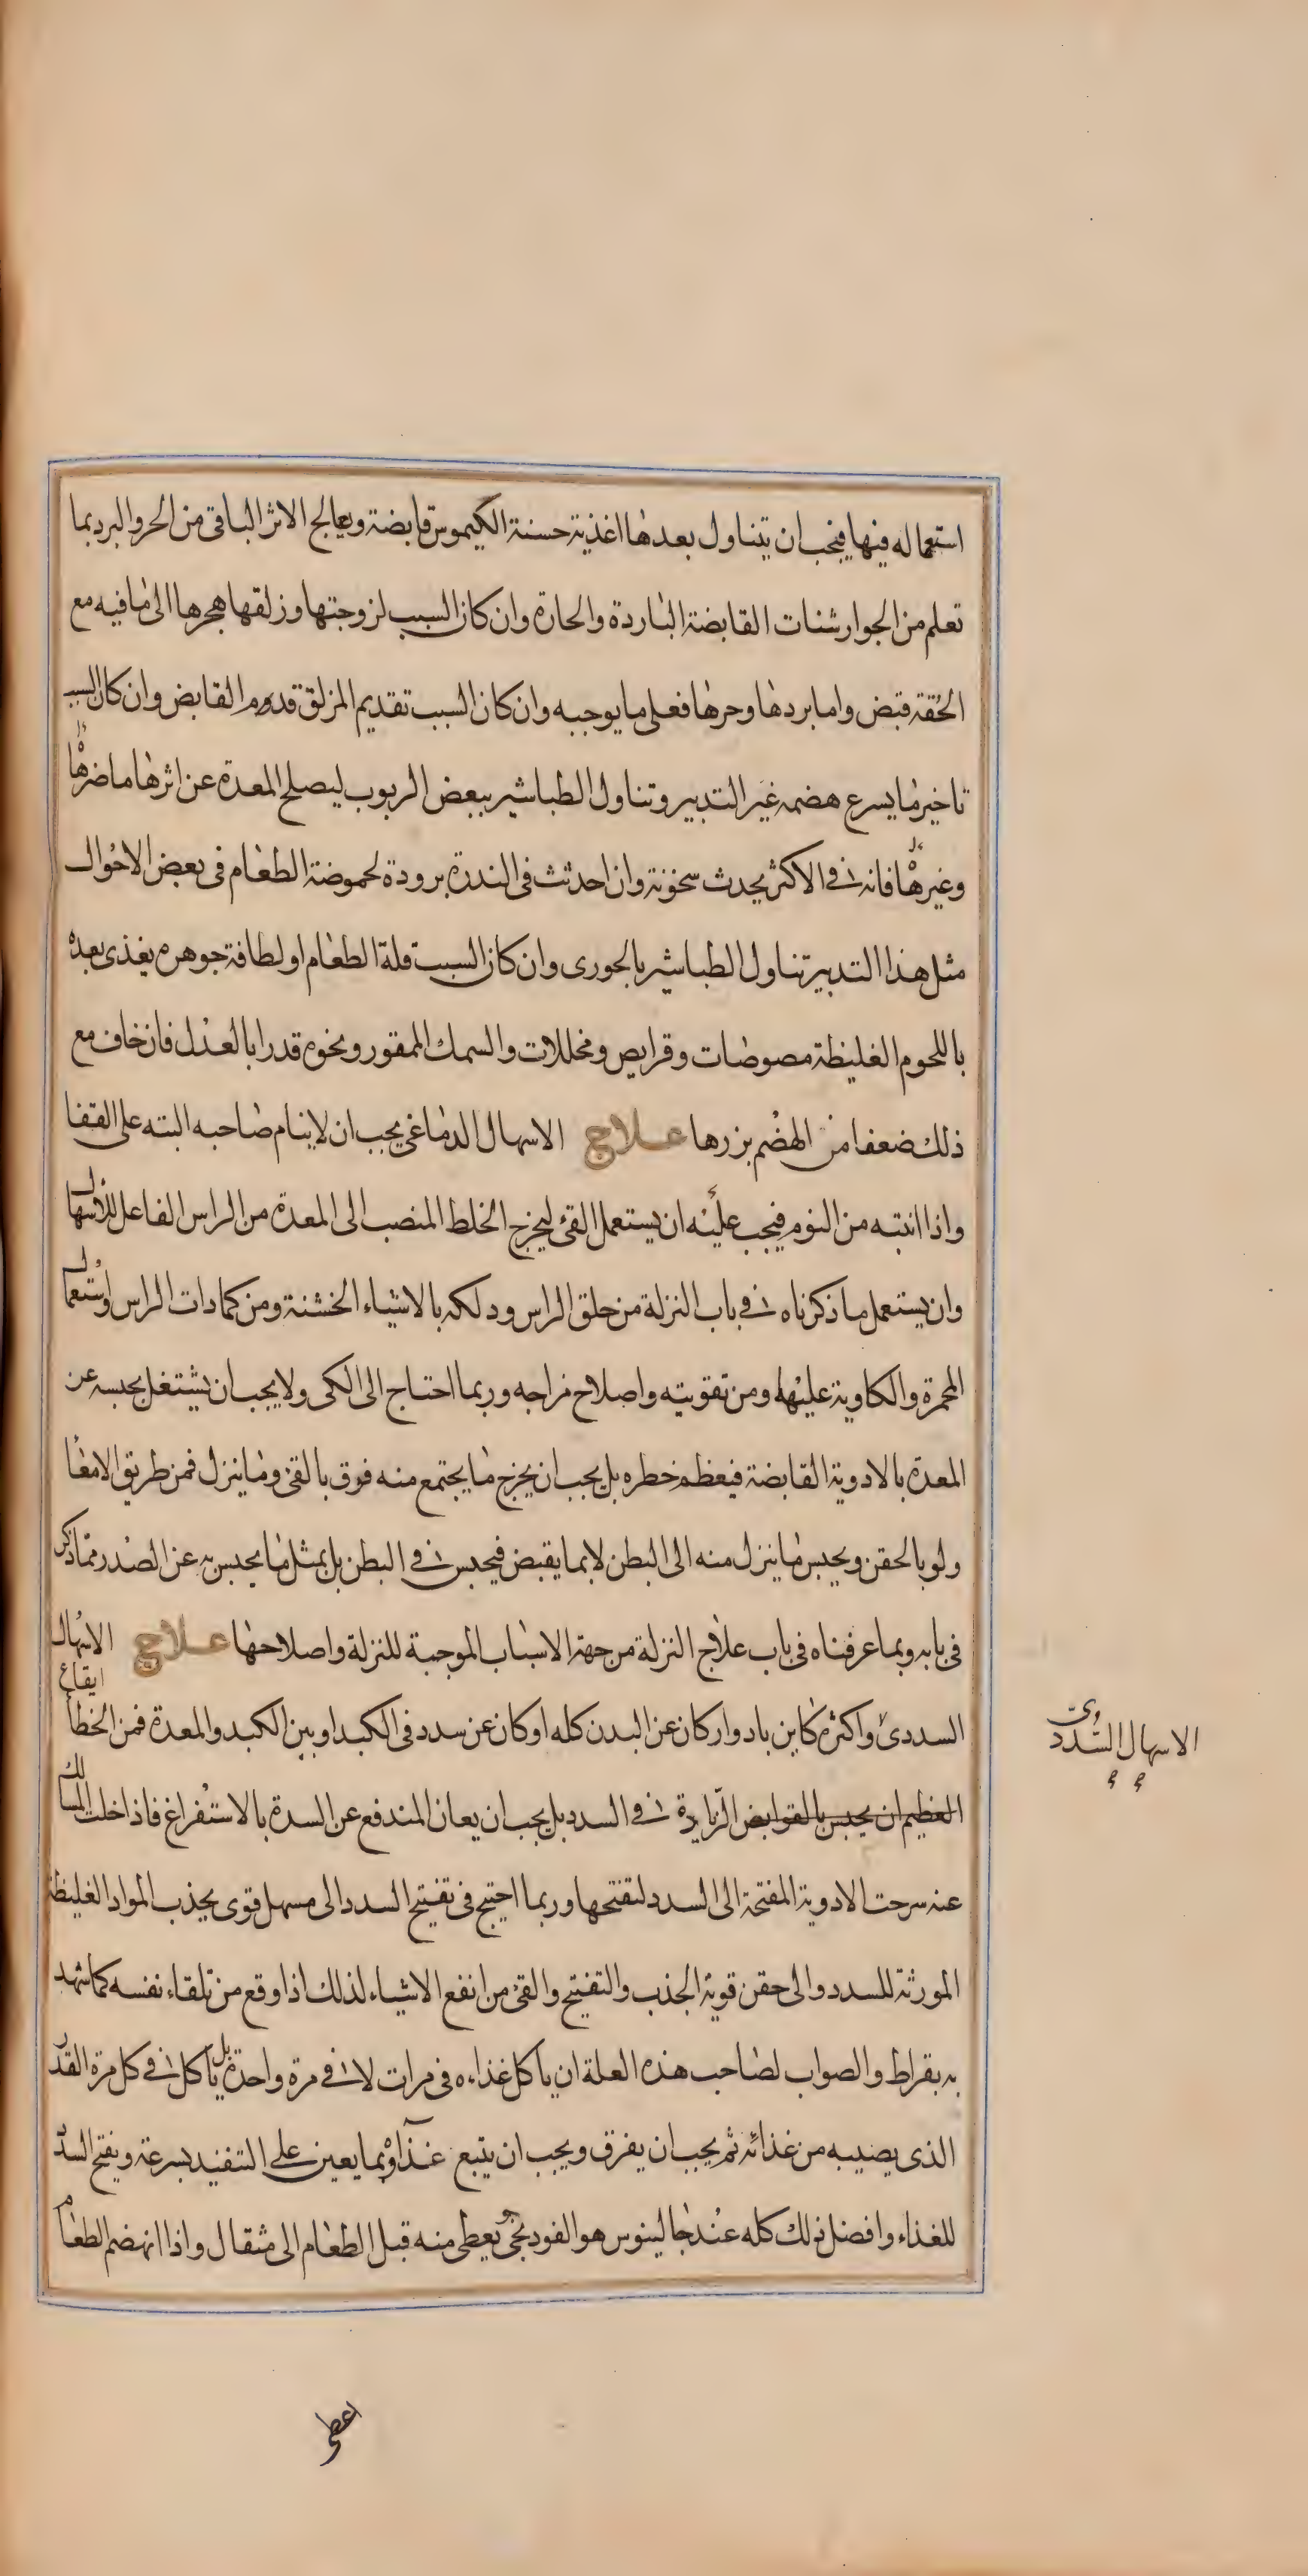 استعماله فيها فيجب ان يتناول بعدها اغذية حسنة الكيموس قابضة ويعالج الاثر الباقى من الحر والبرد بما
تعلم من الجوارشنات القابضة الباردة والحارة وان كان السبب لزوجتها وزلقها هجرها الى ما فيه مع
الخفة قبض واما بردها وحرها فعلى ما يوجبه وان كان السبب تقديم المزلق قدم القابض وان كان السبب
تاخير ما يسرع هضمه غير التدبير وتناول الطباشير ببعض الربوب ليصلح المعدة عن اثرها ما ضرها
وغيرها فانه فى الاكثر يحدث سخونة وان احدثت فى الندرة برودة لحموضة الطعام فى بعض الاحوال
مثل هذا التدبير تناول الطباشير بالحورى وان كان السبب قلة الطعام او لطافة جوهره يغذى بعده
باللحوم الغليظة مصوصات وقرايص ومخللات والسمك الممقور ونحوه قدرا بالعدل فان خاف مع
ذلك ضعفا من الهضم بزرها علاج الاسهال الدماغى يجب ان لا ينام صاحبه البته على القفا
واذا انتبه من النوم فيجب عليه ان يستعمل القئ ليخرج الخلط المنصب الى المعدة من الراس الفاعل للاسهال
وان يستعمل ما ذكرناه فى باب النزلة من حلق الراس ودلكه بالاشياء الخشنة ومن كمادات الراس واستعمال
المحمرة والكاوية عليها ومن تقويته واصلاح مزاجه وربما احتاج الى الكى ولا يجب ان يشتغل بحبسه عن
المعدة بالادوية القابضة فيعظم خطره بل يجب ان يخرج ما يجتمع منه فوق بالقئ وما ينزل فمن طريق الامعا
ولو بالحقن ويحبس ما ينزل منه الى البطن لا بما يقبض فيحبس فى البطن بل بمثل ما يحبس به عن الصدر مما ذكر
فى بابه وبما عرفناه فى باب علاج النزلة من جهة الاسباب الموجبة للنزلة واصلاحها علاج الاسهال
السددى واكثره كاين بادوار كان عن البدن كله او كان عن سدد فى الكبد او بين الكبد والمعدة فمن الخطأ ايقاع
الاسهال السددى
العظيم ان يحبس بالقوابض الزيادة فى السدد بل يجب ان يعان المندفع عن السدة بالاستفراغ فاذا اخلت المسالك
عنه سرحت الادوية المفتحة الى السدد لتفتحها وربما احتيج فى تفتيح السدد الى مسهل قوى يجذب المواد الغليظة
المورثة للسدد والى حقن قوية الجذب والتفتيح والقئ من انفع الاشياء لذلك اذا وقع من تلقاء نفسه كما شهد
به بقراط والصواب لصاحب هذه العلة ان يأكل غذاءه فى مرات لا فى مرة واحدة بل يأكل فى كل مرة القدر
الذى يصيبه من غذائه ثم يجب ان يفرق ويجب ان يتبع غذاؤه بما يعين على التنفيذ بسرعة ويفتح السدد
للغذاء وافضل ذلك كله عند جالينوس هو الفودنجى يعطى منه قبل الطعام الى مثقال واذا انهضم الطعام
اعطى